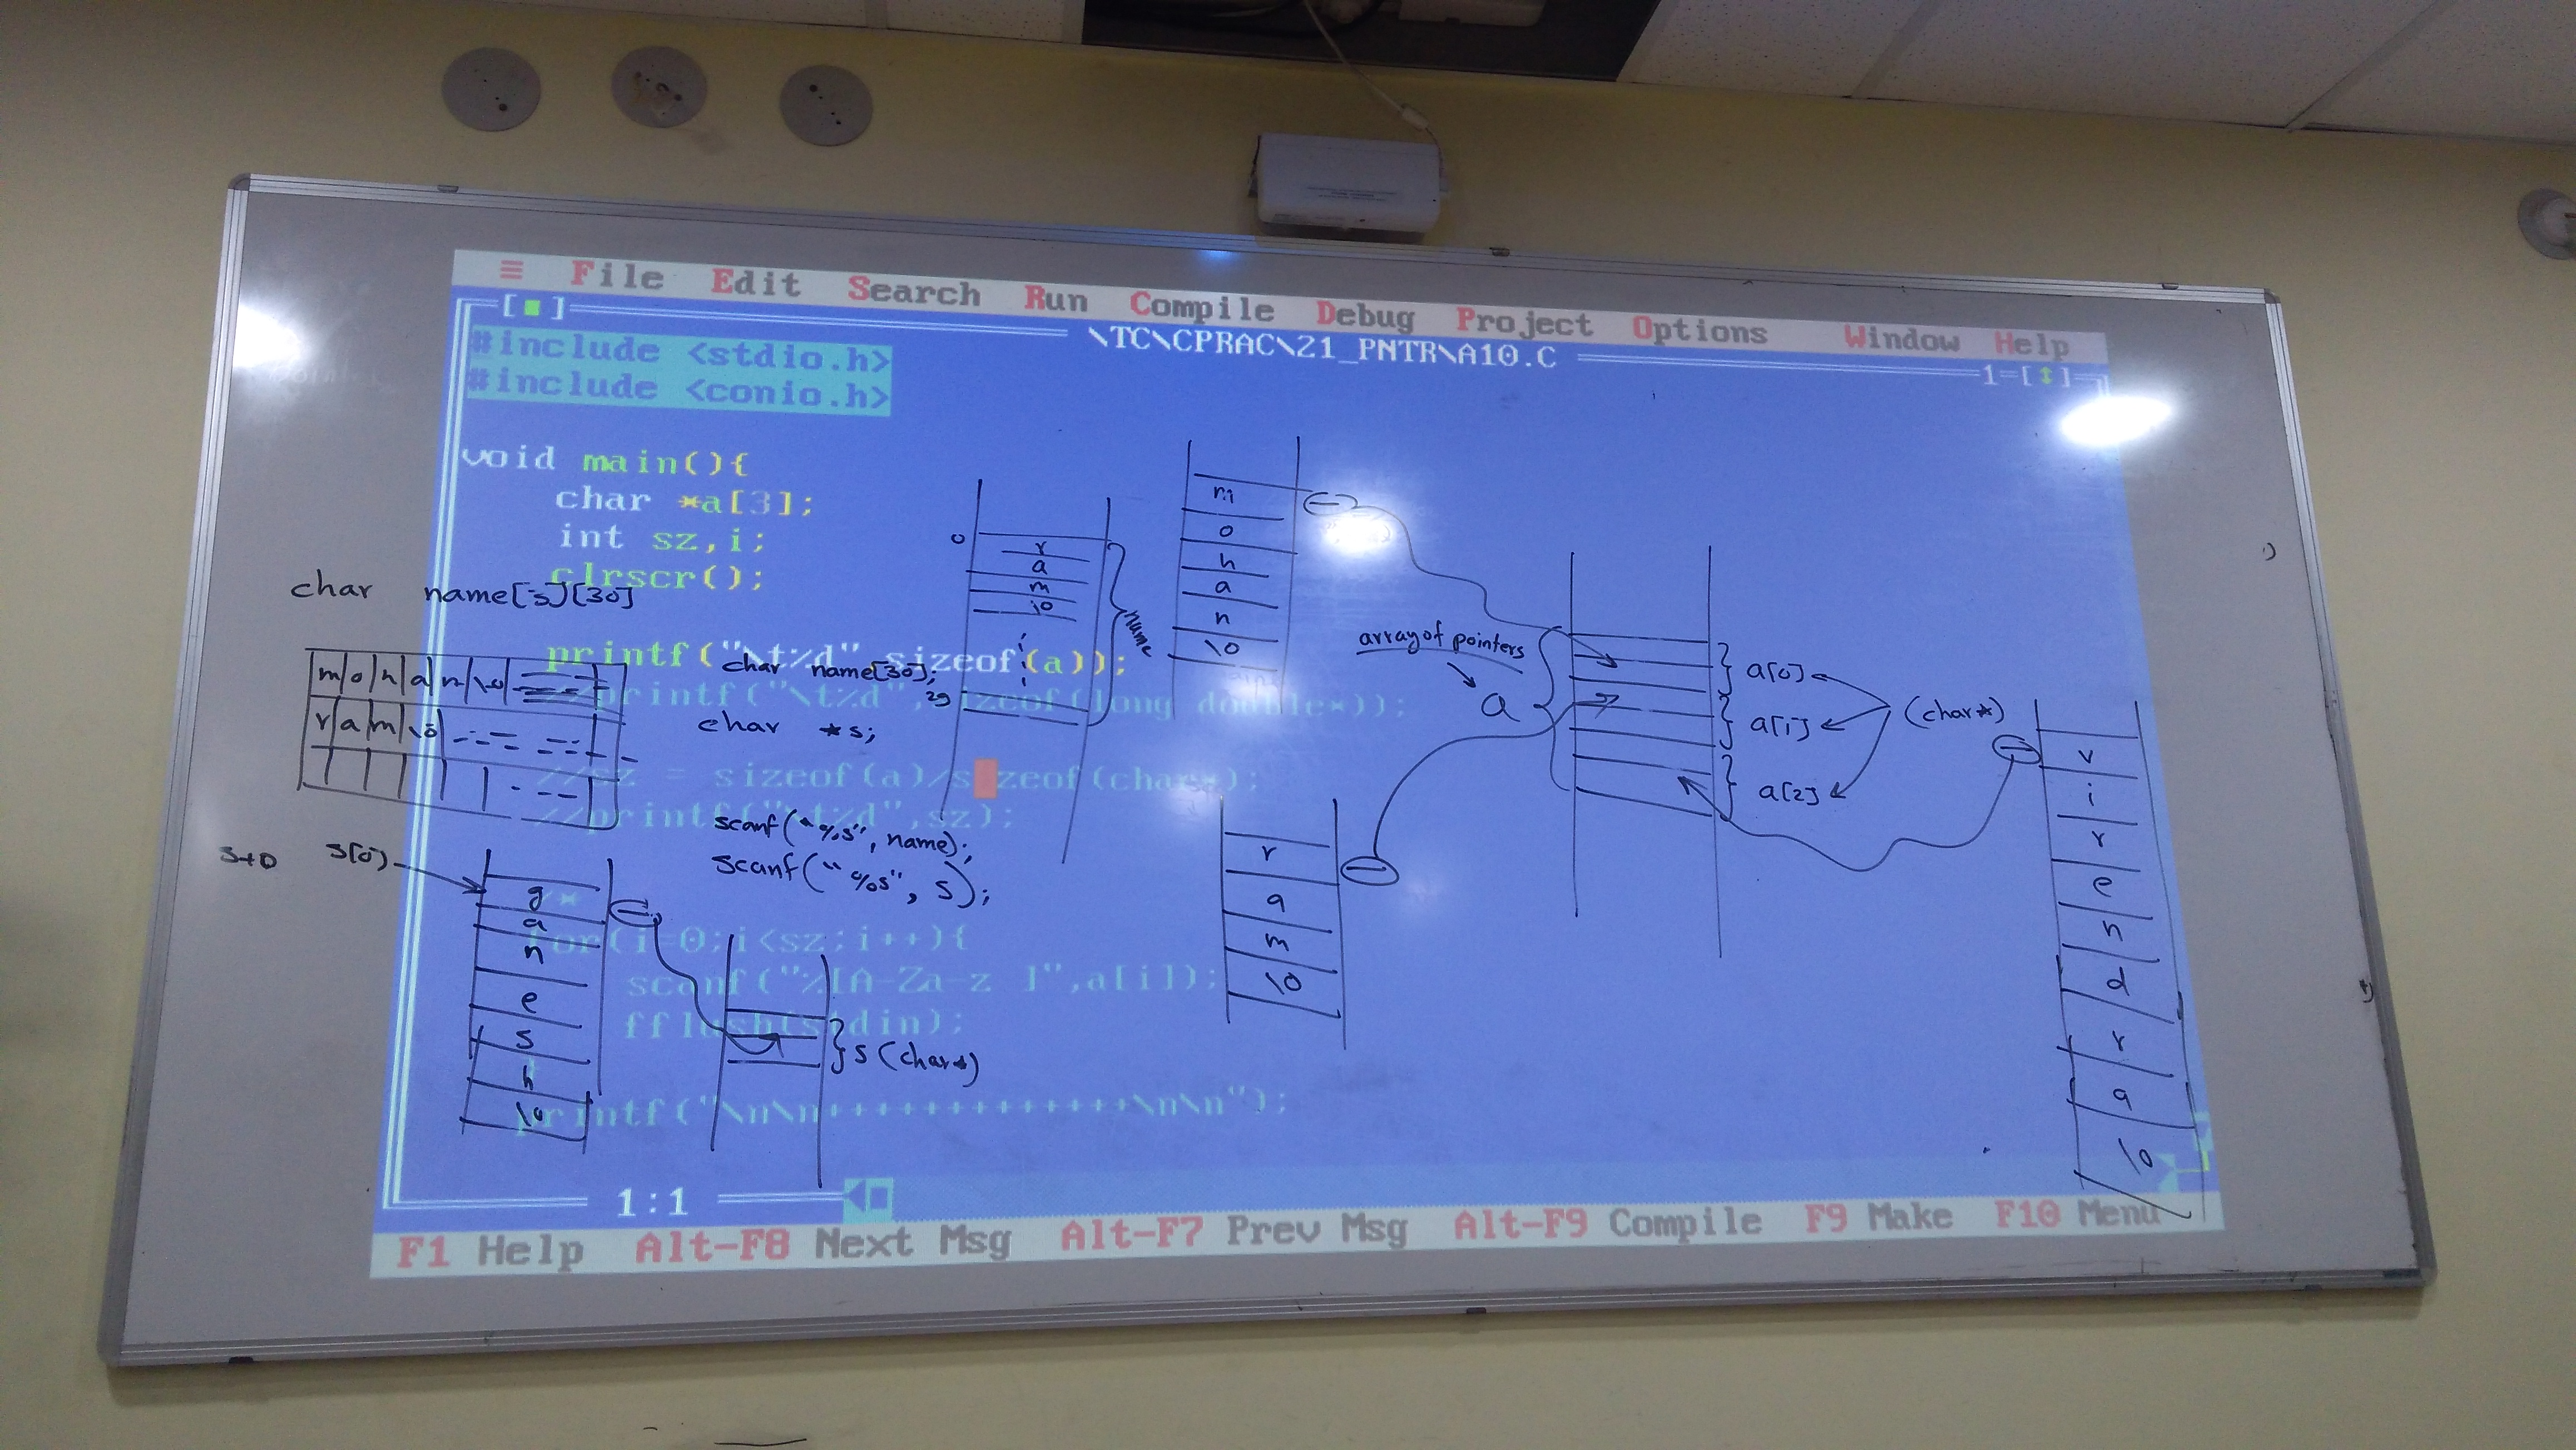 ≡ File Edit Search Run Compile Debug Project Options Window Help
[■] \TC\CPRAC\21_PNTR\A10.C 1=[↕]
#include <stdio.h>
#include <conio.h>
void main(){
char *a[3];
int sz,i;
clrscr();
printf("\t%d" sizeof(a));
//printf("\t%d", sizeof(long double*));
//sz = sizeof(a)/sizeof(char*);
//printf("\t%d",sz);
/*
for(i=0;i<sz;i++){
scanf("%[A-Za-z ]",a[i]);
fflush(stdin);
printf("\n\n+++++++++++++\n\n");
1:1
F1 Help Alt-F8 Next Msg Alt-F7 Prev Msg Alt-F9 Compile F9 Make F10 Menu
char name[3][30]
m o h a n \0
r a m \0
char name[30];
char *s;
scanf("%s", name);
scanf("%s", s);
S+0 S[0]
g
a
n
e
s
h
\0
s (char*)
0
r
a
m
\0
29
name
m
o
h
a
n
\0
array of pointers
a
a[0]
a[1]
a[2]
(char*)
r
a
m
\0
v
i
r
e
n
d
r
a
\0